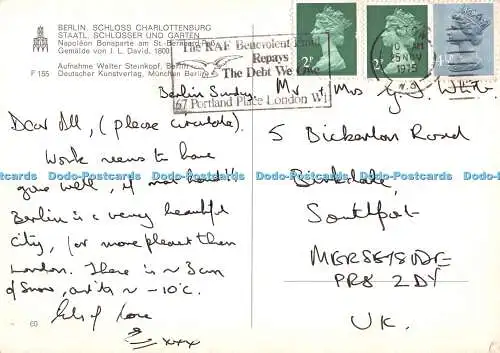 BERLIN, SCHLOSS CHARLOTTENBURG
STAATL. SCHLÖSSER UND GÄRTEN
Napoléon Bonaparte am St.-Bernard-Paß
Gemälde von J. L. David, 1800
Aufnahme Walter Steinkopf, Berlin
F 155 Deutscher Kunstverlag, München Berlin
The RAF Benevolent Fund
Repays
The Debt We Owe
67 Portland Place London W1
2P
2P
25 NOV
1975
Berlin Sunday.
Dear All, (please circulate).
Work seems to have
gone well, if not hard!!
Berlin is a very beautiful
city, far more pleasant than
London. There is ~ 3cm
of snow, and it's ~ -10°C.
Lots of love
xxxx
Mr & Mrs G. J. White
5 Bickerton Road
Birkdale,
Southport
MERSEYSIDE
PR8 2DY
UK.
60
Dodo-Postcards Dodo-Postcards Dodo-Postcards Dodo-Postcards Dodo-Postcards